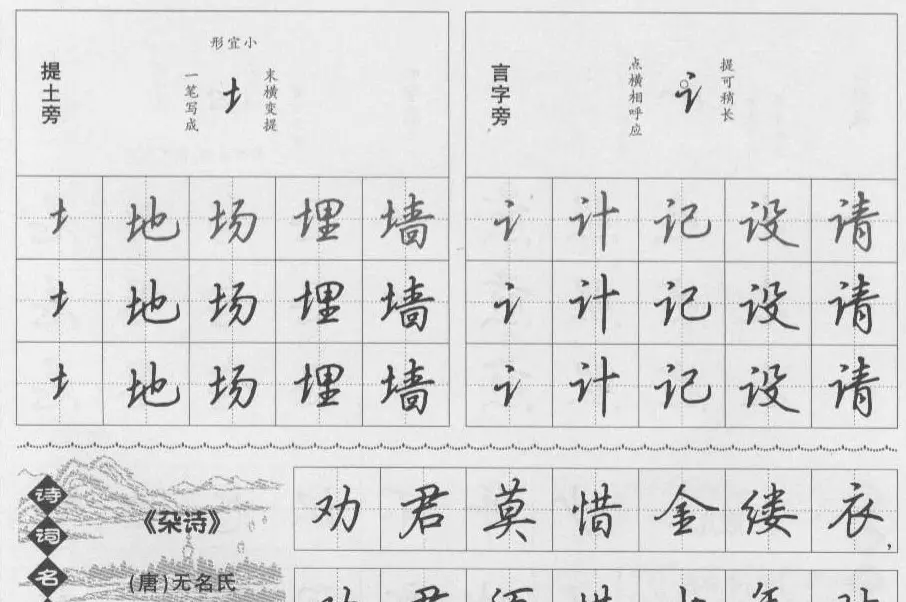 提土旁
形宜小
一笔写成
末横变提
土 地 场 埋 墙
土 地 场 埋 墙
土 地 场 埋 墙
言字旁
点横相呼应
提可稍长
讠 计 记 设 请
讠 计 记 设 请
讠 计 记 设 请
诗词名
《杂诗》
(唐)无名氏
劝君莫惜金缕衣,
劝君须惜少年时